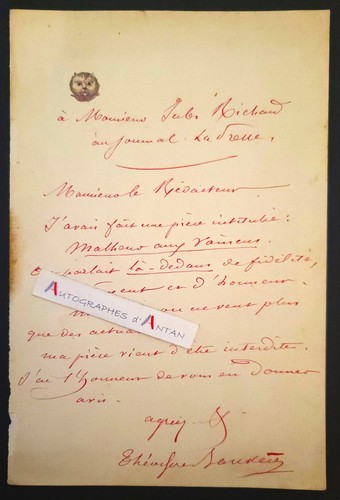 à Monsieur Jules Richard
au journal La Presse,
Monsieur le Rédacteur
J'avais fait une pièce intitulée :
Malheur aux Vaincus.
parlait là-dedans de fidélité,
et d'honneur.
on ne veut plus
que des
AUTOGRAPHES d'ANTAN
ma pièce vient d'être interdite.
J'ai l'honneur de vous en donner
avis.
agréez
Théodore Barrière